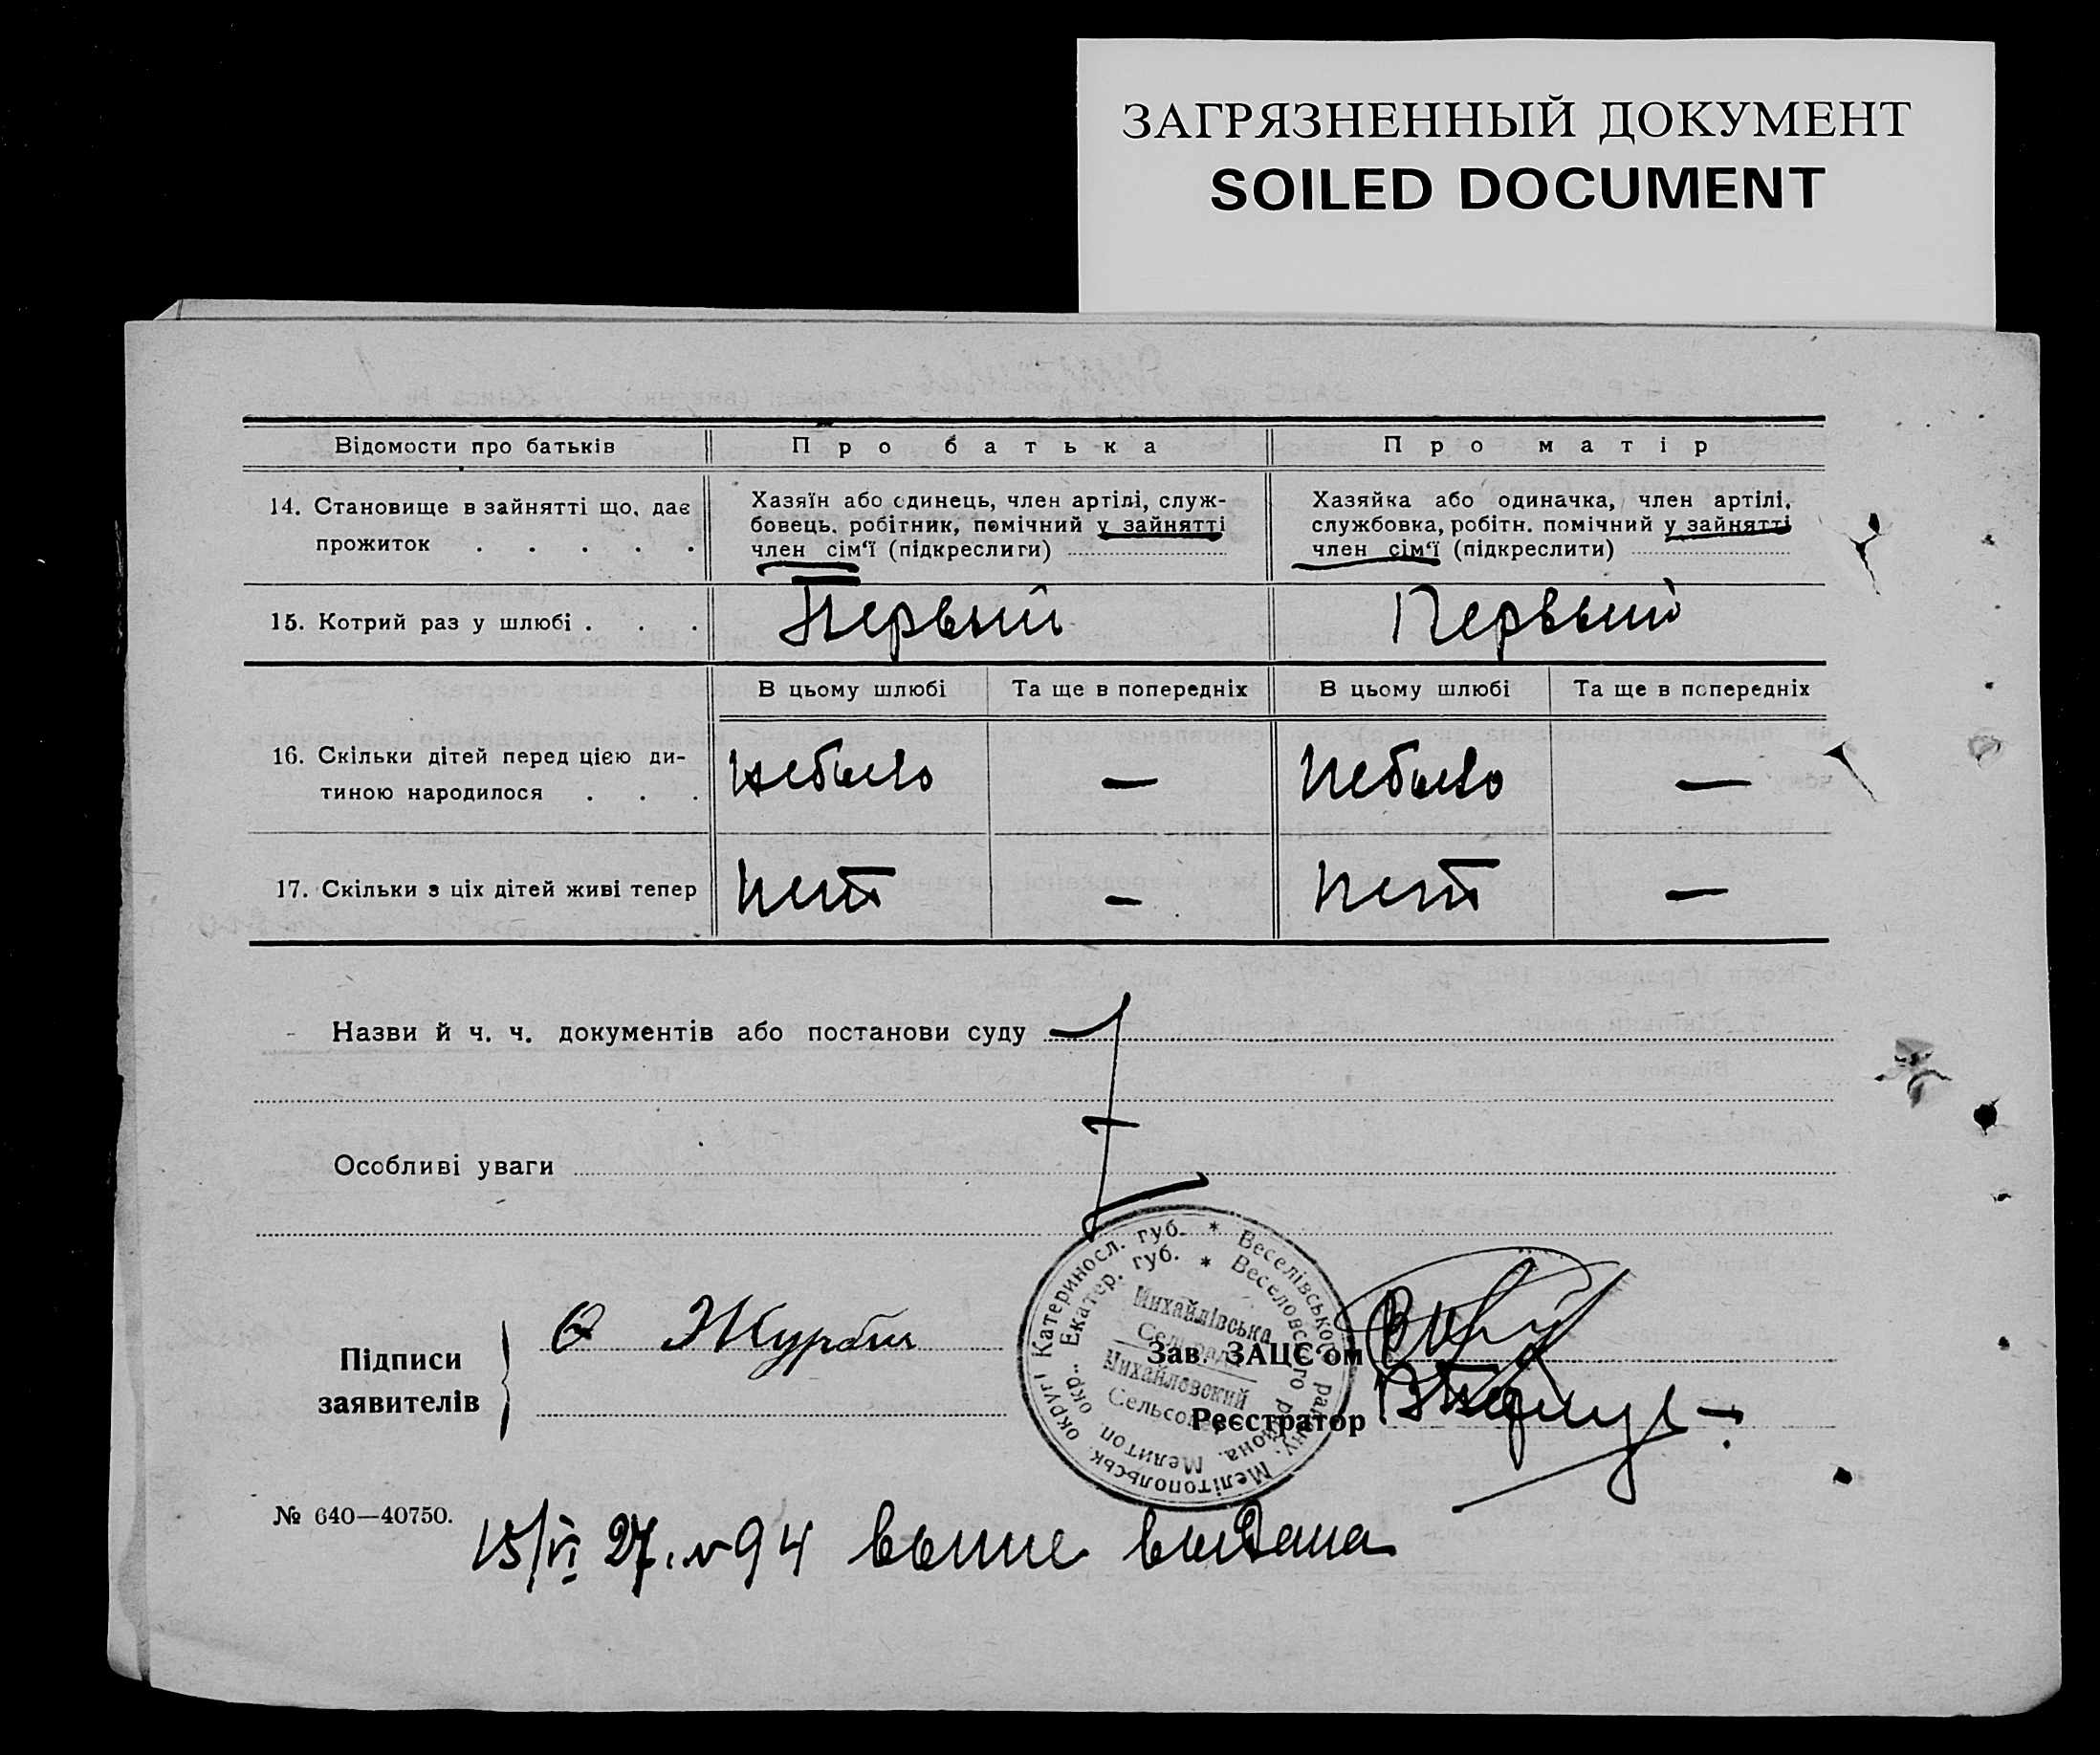 ЗАГРЯЗНЕННЫЙ ДОКУМЕНТ
SOILED DOCUMENT
Відомости про батьків
Про батька
Про матір
14. Становище в зайнятті що, дає
прожиток . . . . .
Хазяїн або одинець, член артілі, служ-
бовець, робітник, помічний у зайнятті
член сім'ї (підкреслити)
Хазяйка або одиначка, член артілі,
службовка, робітн. помічний у зайнятті
член сім'ї (підкреслити)
15. Котрий раз у шлюбі . . .
Первый
Первый
В цьому шлюбі
Та ще в попередніх
В цьому шлюбі
Та ще в попередніх
16. Скільки дітей перед цією ди-
тиною народилося . . .
небыло
—
небыло
—
17. Скільки з ціх дітей живі тепер
нет
—
нет
—
Назви й ч. ч. документів або постанови суду
Особливі уваги
Катериносл. губ. * Веселівського району, Мелітопольськ. округі
Екатер. губ. * Веселовского района, Мелитоп. окр.
Михайлівська
Сельрада
Михайловский
Сельсовет
Підписи
заявителів
Журба
Зав. ЗАЦС'ом
Реєстратор
№ 640—40750.
15/VI 27. № 94 выпис выдана